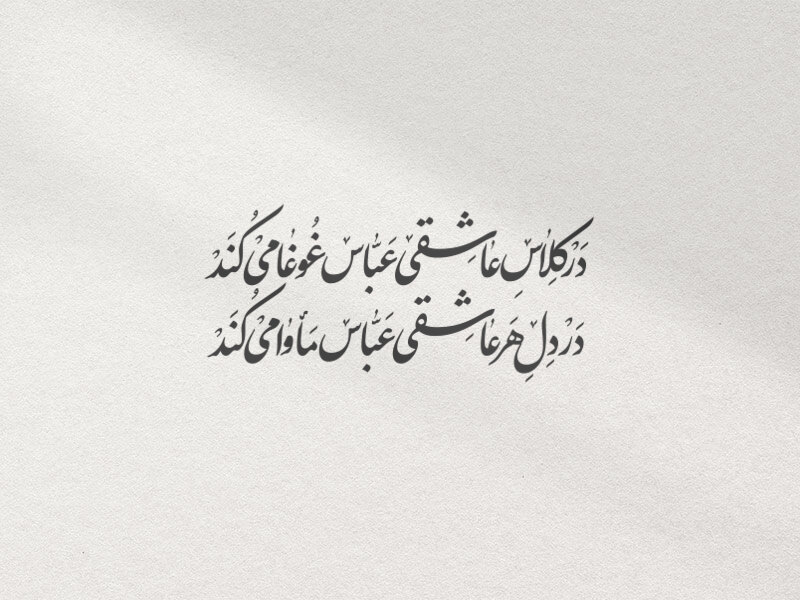 دَر کِلاسِ عاشِقی عَبّاس غُوغا می کُنَد
دَر دِلِ هَر عاشِقی عَبّاس مَأوا می کُنَد